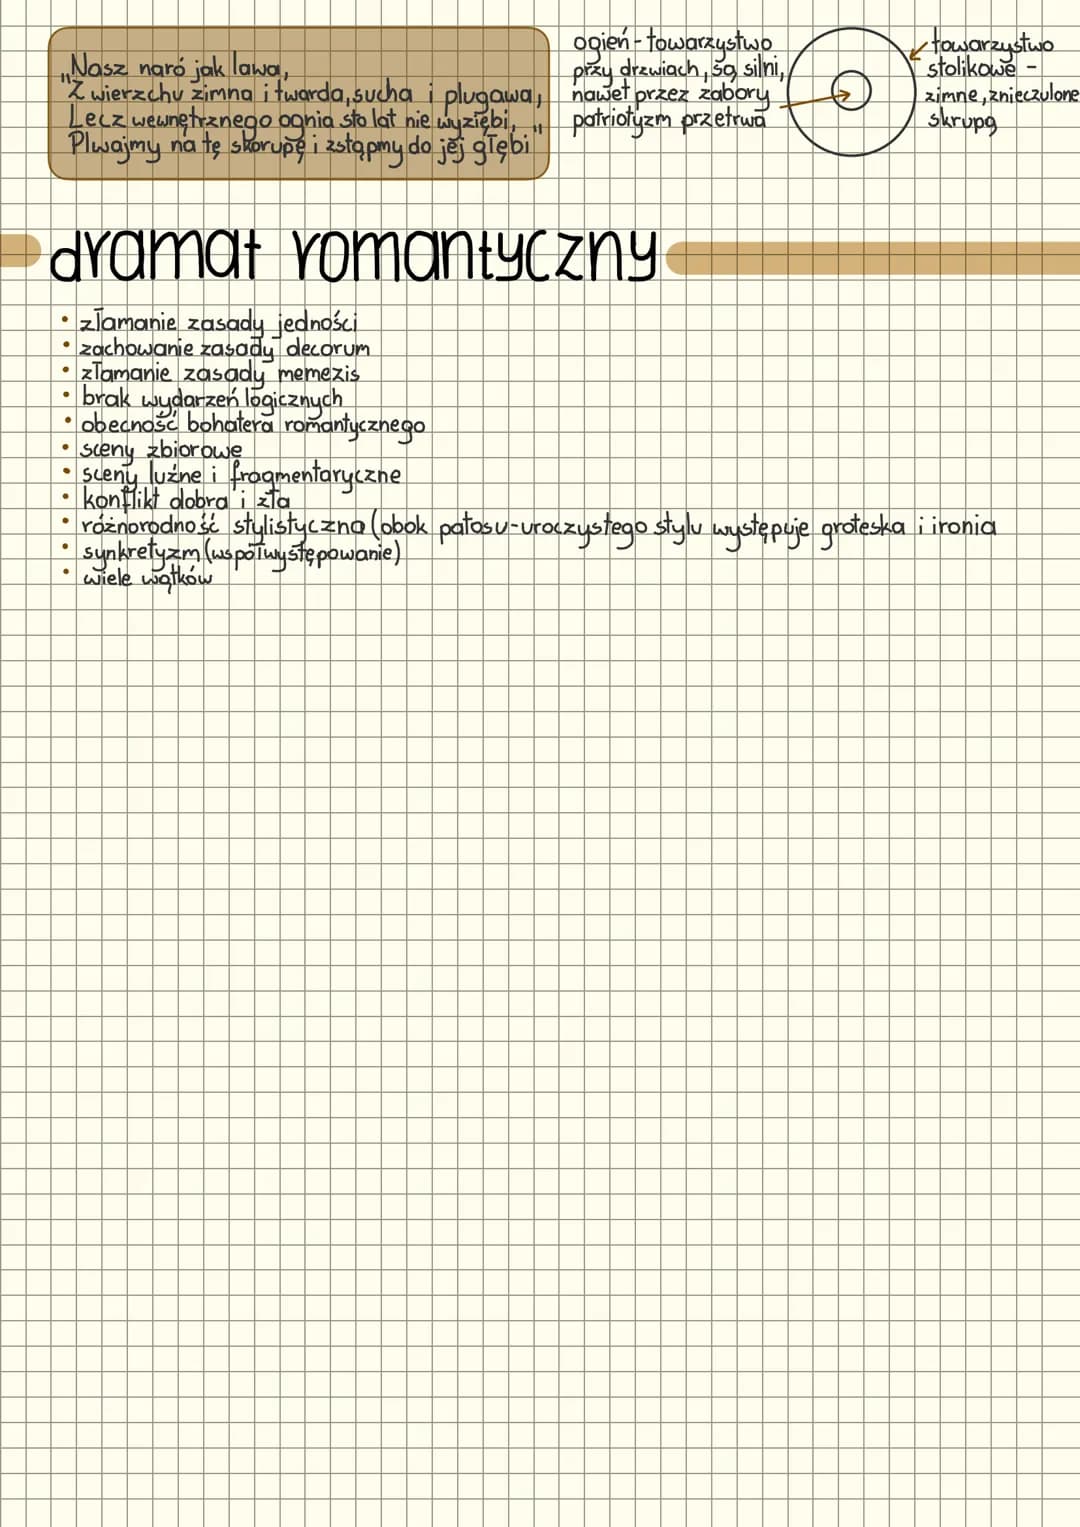 „Nasz naró jak lawa,
Z wierzchu zimna i twarda, sucha i plugawa,
Lecz wewnętrznego ognia sto lat nie wyziębi,
Plwajmy na tę skorupę i zstąpmy do jej głębi"
ogień - towarzystwo
przy drzwiach, są silni,
nawet przez zabory
patriotyzm przetrwa
towarzystwo
stolikowe -
zimne, znieczulone
skrupą
dramat romantyczny
• złamanie zasady jedności
• zachowanie zasady decorum
• złamanie zasady memezis
• brak wydarzeń logicznych
• obecność bohatera romantycznego
• sceny zbiorowe
• sceny luźne i fragmentaryczne
• konflikt dobra i zła
• różnorodność stylistyczna (obok patosu-uroczystego stylu występuje groteska i ironia
• synkretyzm (współwystępowanie)
• wiele wątków